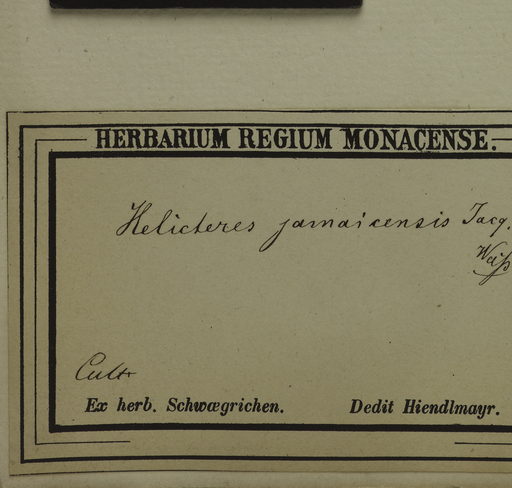 HERBARIUM REGIUM MONACENSE.
Helicteres jamaicensis Jacq.
Cult
Ex herb. Schwægrichen. Dedit Hiendlmayr.